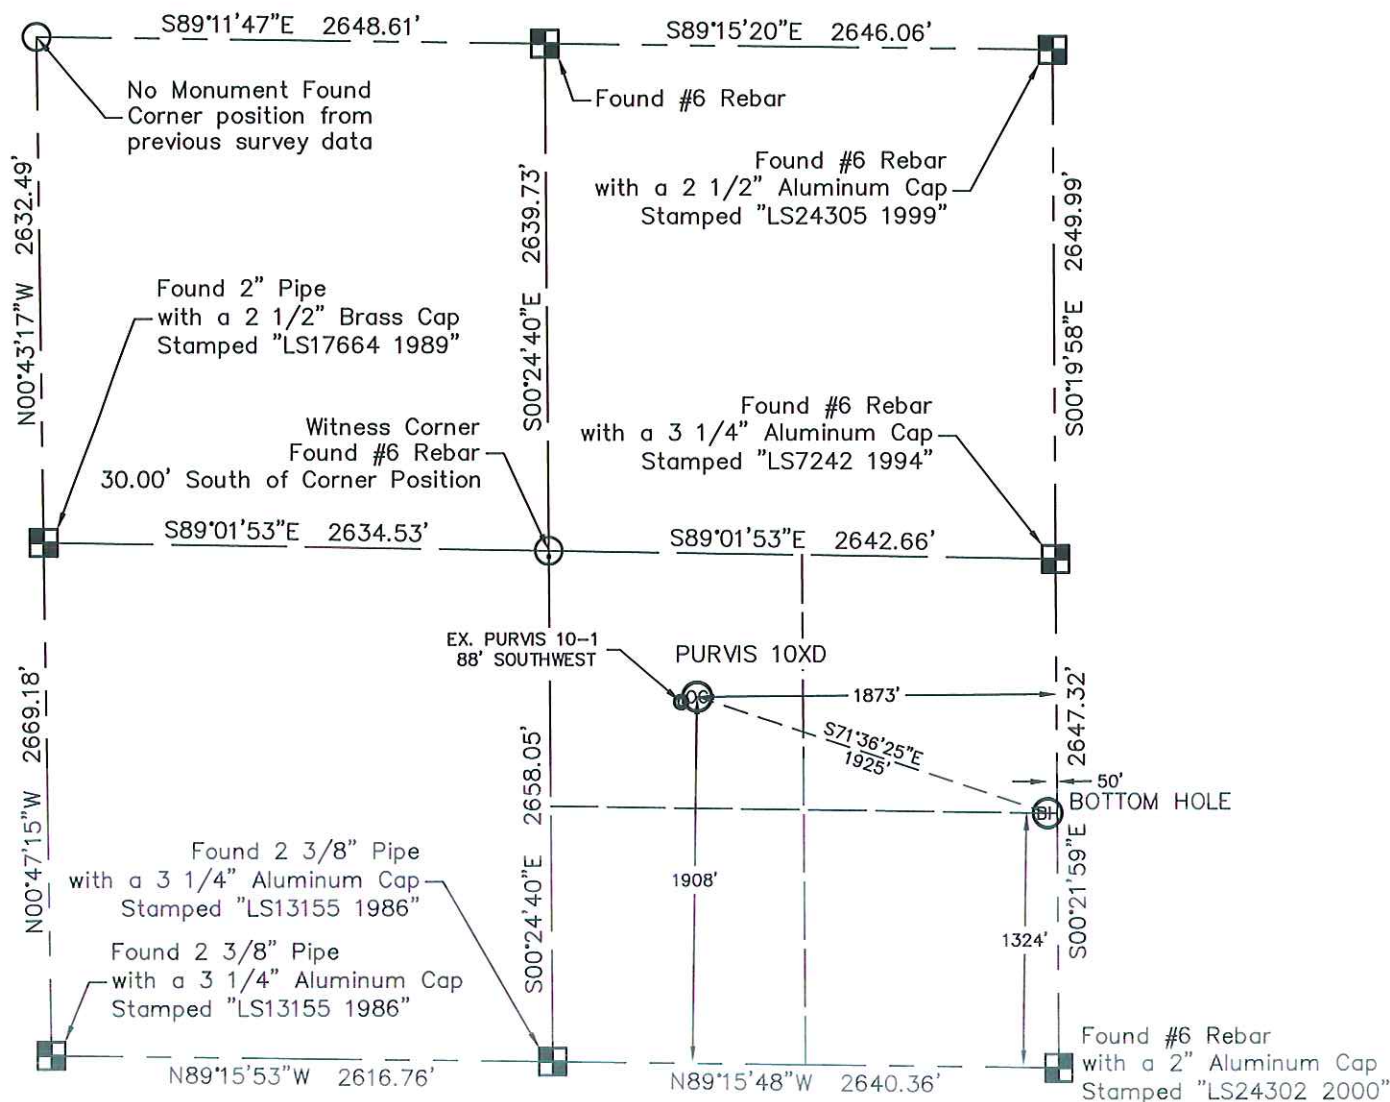 S89°11'47"E 2648.61'
S89°15'20"E 2646.06'
No Monument Found
Corner position from
previous survey data
Found #6 Rebar
Found #6 Rebar
with a 2 1/2" Aluminum Cap
Stamped "LS24305 1999"
N00°43'17"W 2632.49'
S00°24'40"E 2639.73'
S00°19'58"E 2649.99'
Found 2" Pipe
with a 2 1/2" Brass Cap
Stamped "LS17664 1989"
Witness Corner
Found #6 Rebar
30.00' South of Corner Position
Found #6 Rebar
with a 3 1/4" Aluminum Cap
Stamped "LS7242 1994"
S89°01'53"E 2634.53'
S89°01'53"E 2642.66'
EX. PURVIS 10-1
88' SOUTHWEST
PURVIS 10XD
OG
1873'
S71°36'25"E
1925'
50'
BOTTOM HOLE
BH
N00°47'15"W 2669.18'
S00°24'40"E 2658.05'
S00°21'59"E 2647.32'
1908'
1324'
Found 2 3/8" Pipe
with a 3 1/4" Aluminum Cap
Stamped "LS13155 1986"
Found 2 3/8" Pipe
with a 3 1/4" Aluminum Cap
Stamped "LS13155 1986"
N89°15'53"W 2616.76'
N89°15'48"W 2640.36'
Found #6 Rebar
with a 2" Aluminum Cap
Stamped "LS24302 2000"